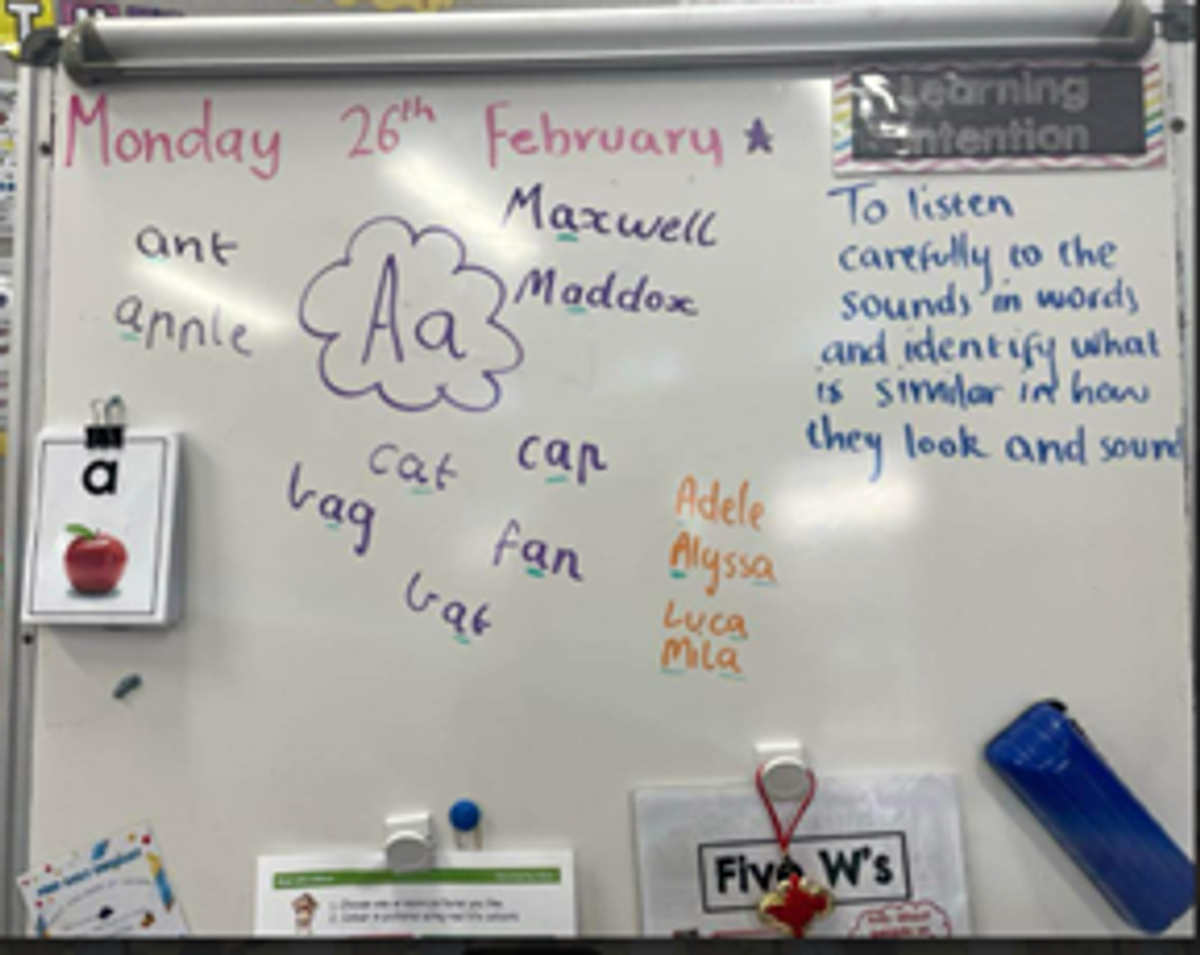 Monday 26th February
Learning
Intention
To listen
carefully to the
sounds in words
and identify what
is similar in how
they look and sound
ant
apple
Aa
Maxwell
Maddox
cat
cap
bag
fan
bat
Adele
Alyssa
Luca
Mila
a
Five W's